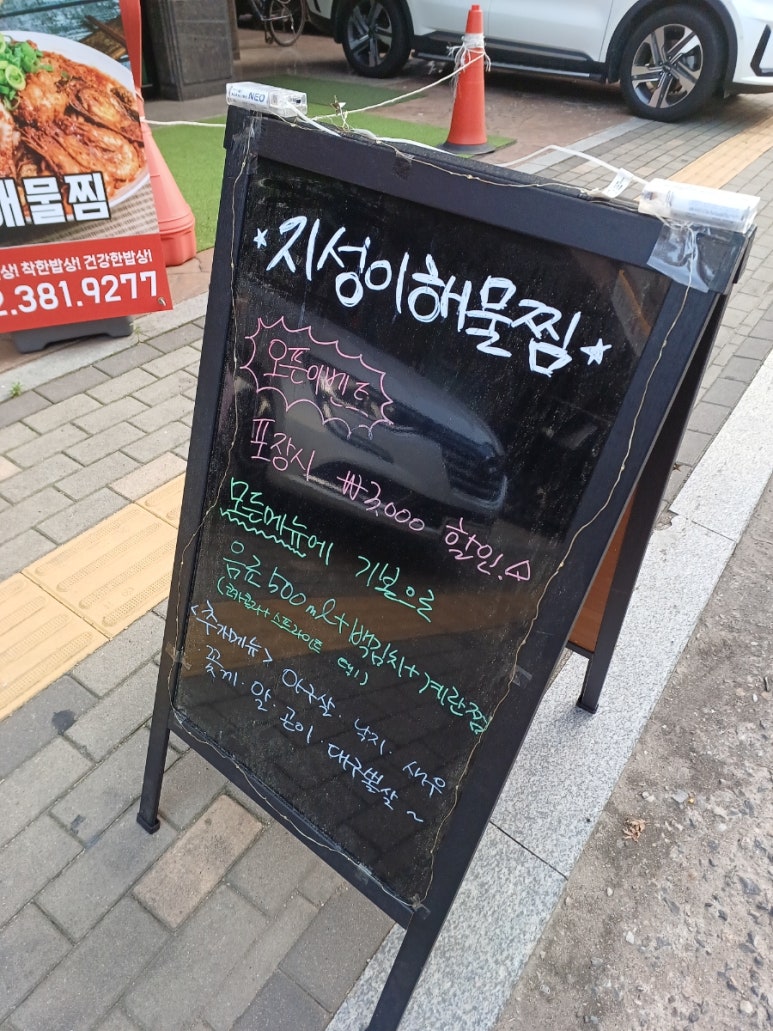 해물찜
상! 착한밥상! 건강한밥상!
2.381.9277
NEO
지성이해물찜
오픈이벤트
포장시 ₩3,000 할인
모든메뉴에 기본으로
음료500ml+백김치+계란찜
(코카콜라+스프라이트
<추가메뉴> 아구살. 낙지. 새우
꽃게. 알. 곤이. 대구뽈살~